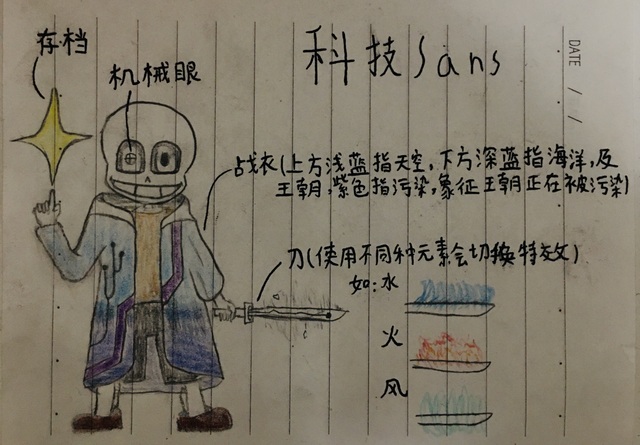 科技Sans
DATE / /
存档
机械眼
战衣(上方浅蓝指天空,下方深蓝指海洋,及
王朝,紫色指污染,象征王朝正在被污染)
刀(使用不同种元素会切换特效)
如:水
火
风